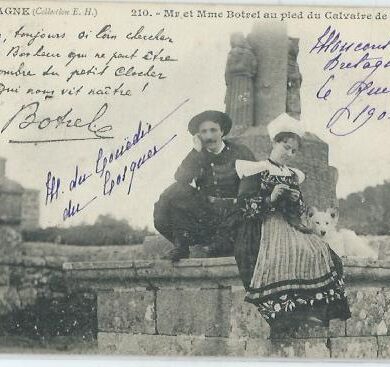 AGNE (Collection E. H.) 210. - Mr et Mme Botrel au pied du Calvaire de
, toujours si loin chercher
Bonheur qui ne peut être
ombre du petit Clocher
qui nous vit naître !
Botrel
M. du Gouëdic
du Cosquer
Bretagne
le
190